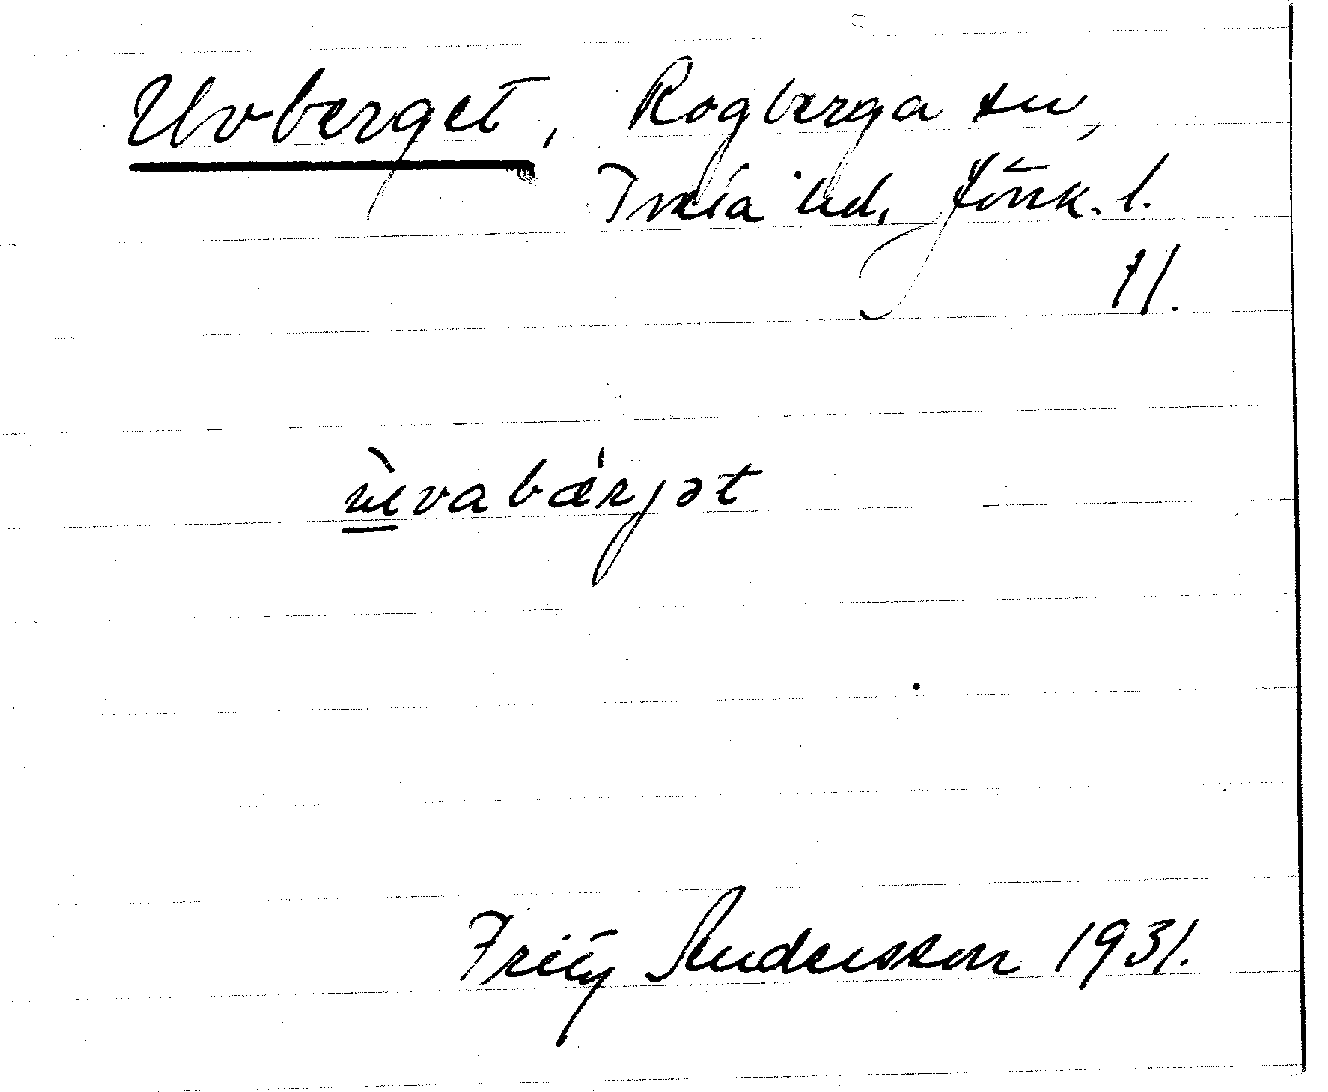 Uvberget, Rogberga sn,
Tveta hd. Jönk. l.
11.
ùvabǽrjət
Fritz Andersson 1931.